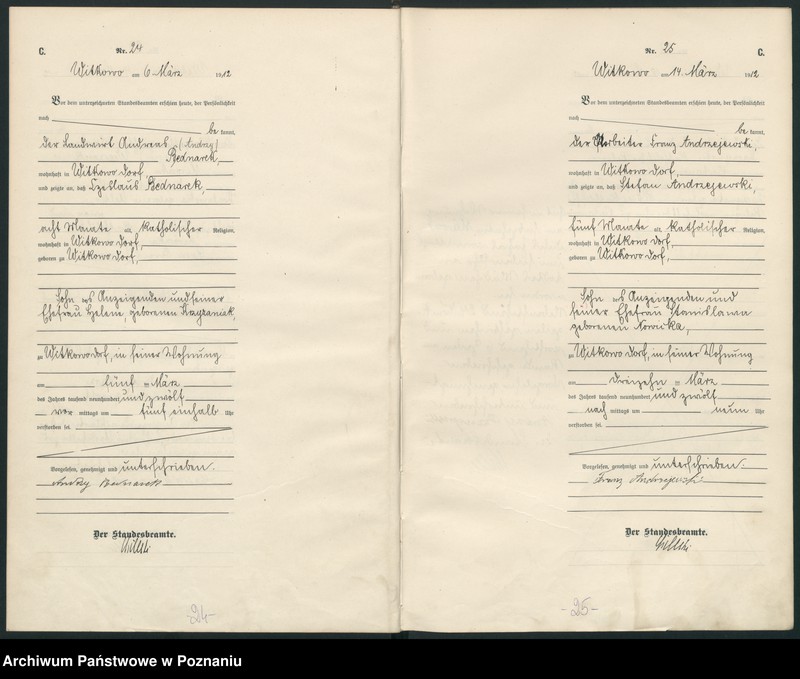 C.
Nr. 24
Witkowo am 6 März 1912
Vor dem unterzeichneten Standesbeamten erschien heute, der Persönlichkeit
nach
be kannt,
der Landwirt Andreas (Andrzy)
Bednarek,
wohnhaft in Witkowo dorf,
und zeigte an, daß Czeslaus Bednarek,
acht Monate alt, katholischer Religion,
wohnhaft in Witkowo dorf,
geboren zu Witkowo dorf,
Sohn des Anzeigenden und seiner
Ehefrau Helene, geborenen Krzyzaniak,
zu Witkowo dorf, in seiner Wohnung
am fünf ten März
des Jahres tausend neunhundert und zwölf
vor mittags um fünf einhalb Uhr
verstorben sei.
Vorgelesen, genehmigt und unterschrieben.
Andrzy Bednarek
Der Standesbeamte.
-24-
Nr. 25
C.
Witkowo am 14. März 1912
Vor dem unterzeichneten Standesbeamten erschien heute, der Persönlichkeit
nach
be kannt,
der Arbeiter Franz Andrzejewski,
wohnhaft in Witkowo dorf,
und zeigte an, daß Stefan Andrzejewski,
fünf Monate alt, katholischer Religion,
wohnhaft in Witkowo dorf,
geboren zu Witkowo dorf,
Sohn des Anzeigenden und
seiner Ehefrau Stanislawa
geborenen Nowicka,
zu Witkowo dorf, in seiner Wohnung
am dreizehn ten März
des Jahres tausend neunhundert und zwölf
nach mittags um neun Uhr
verstorben sei.
Vorgelesen, genehmigt und unterschrieben.
Franz Andrzejewski
Der Standesbeamte.
-25-
Archiwum Państwowe w Poznaniu